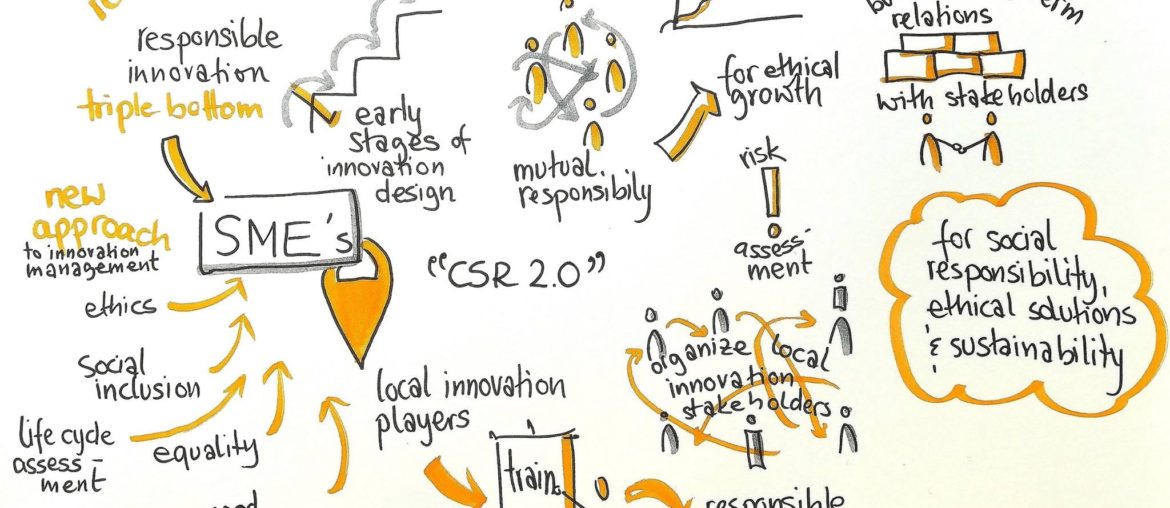 responsible
innovation
triple bottom
early
stages of
innovation
design
mutual
responsibily
for ethical
growth
relations
with stakeholders
risk
assess-
ment
new
approach
to innovation
management
SME's
"CSR 2.0"
ethics
social
inclusion
life cycle
assess-
ment
equality
local innovation
players
train
organize local
innovation
stakeholders
for social
responsibility,
ethical solutions
& sustainability
responsible